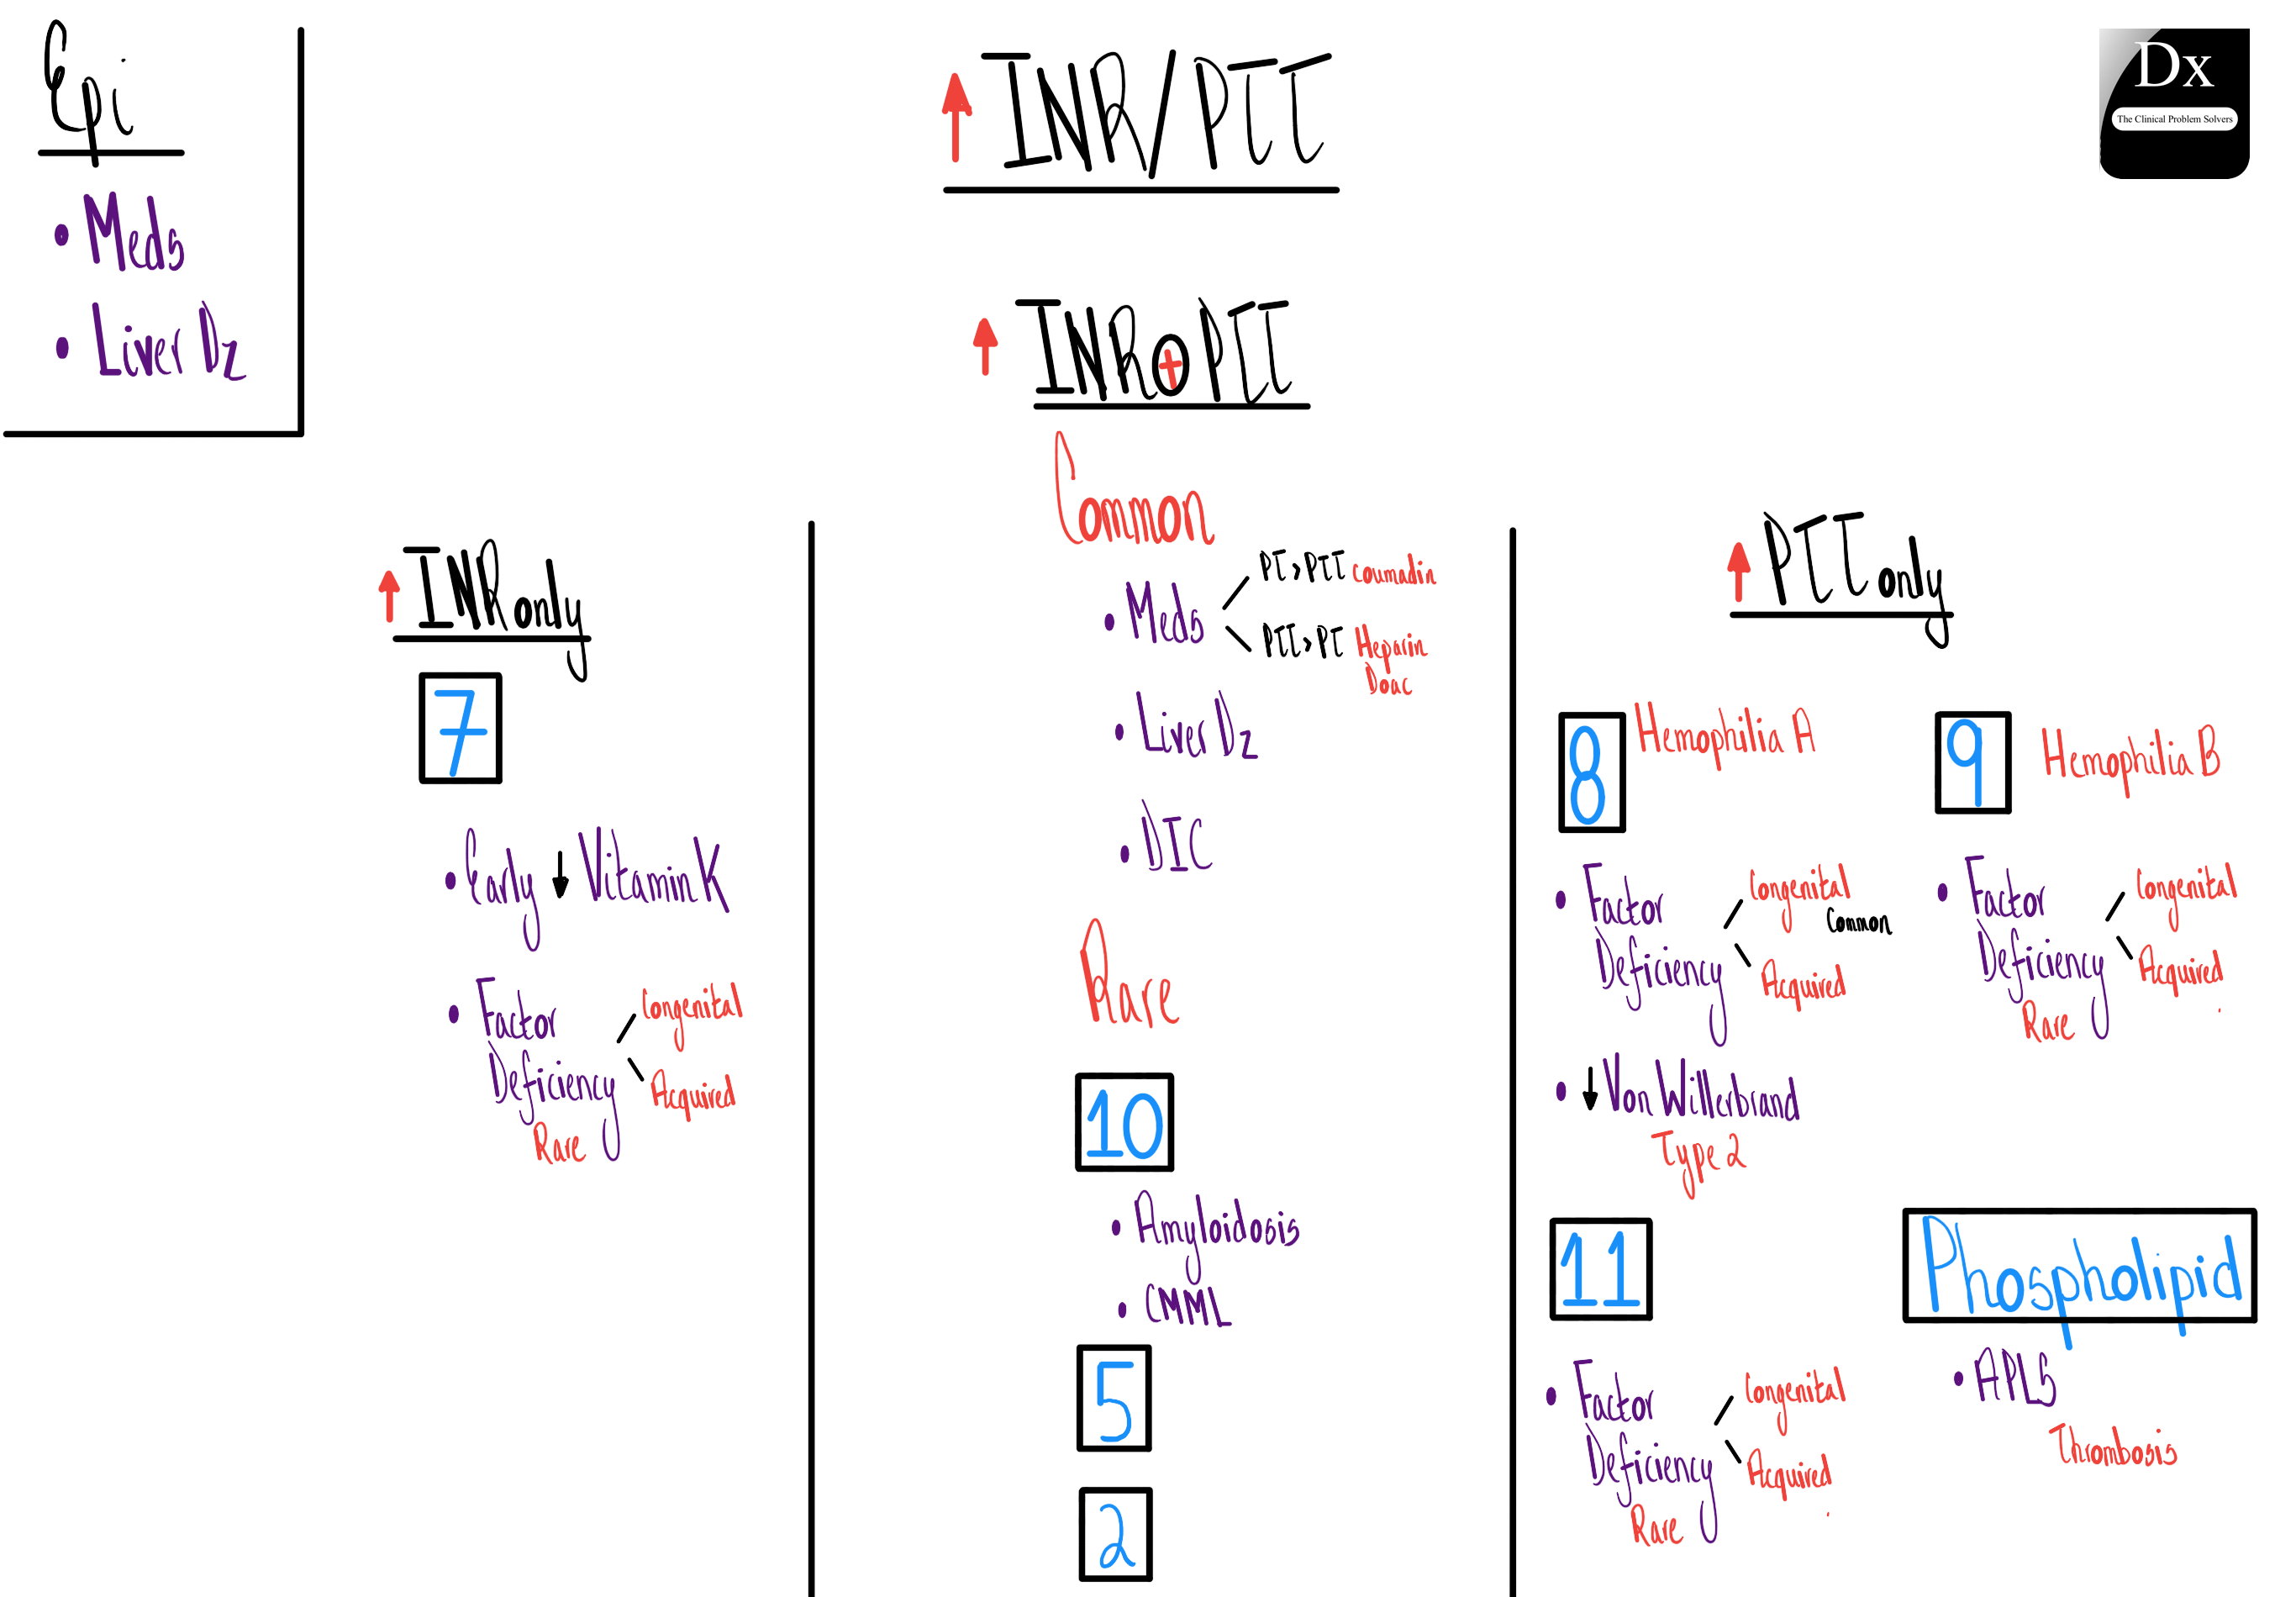 Epi
• Meds
• Liver Dz
↑ INR/PTT
Dx
The Clinical Problem Solvers
↑ INR + PTT
Common
• Meds
PT > PTT Coumadin
PTT > PT Heparin
Doac
• Liver Dz
• DIC
Rare
10
• Amyloidosis
• CMML
5
2
↑ INR only
7
• Early ↓ Vitamin K
• Factor
Deficiency
Rare
Congenital
Acquired
↑ PTT only
8 Hemophilia A
• Factor
Deficiency
Congenital
Common
Acquired
• ↓ Von Willerbrand
Type 2
9 Hemophilia B
• Factor
Deficiency
Rare
Congenital
Acquired
11
• Factor
Deficiency
Rare
Congenital
Acquired
Phospholipid
• APLS
Thrombosis